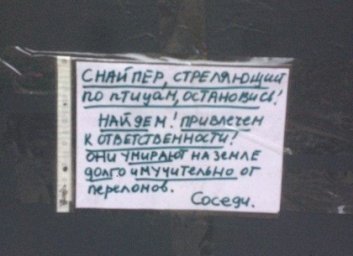 СНАЙПЕР, СТРЕЛЯЮЩИЙ
ПО ПТИЦАМ, ОСТАНОВИСЬ!
НАЙДЕМ! ПРИВЛЕЧЕМ
К ОТВЕТСТВЕННОСТИ!
ОНИ УМИРАЮТ НА ЗЕМЛЕ
ДОЛГО И МУЧИТЕЛЬНО ОТ
ПЕРЕЛОМОВ.
СОСЕДИ.